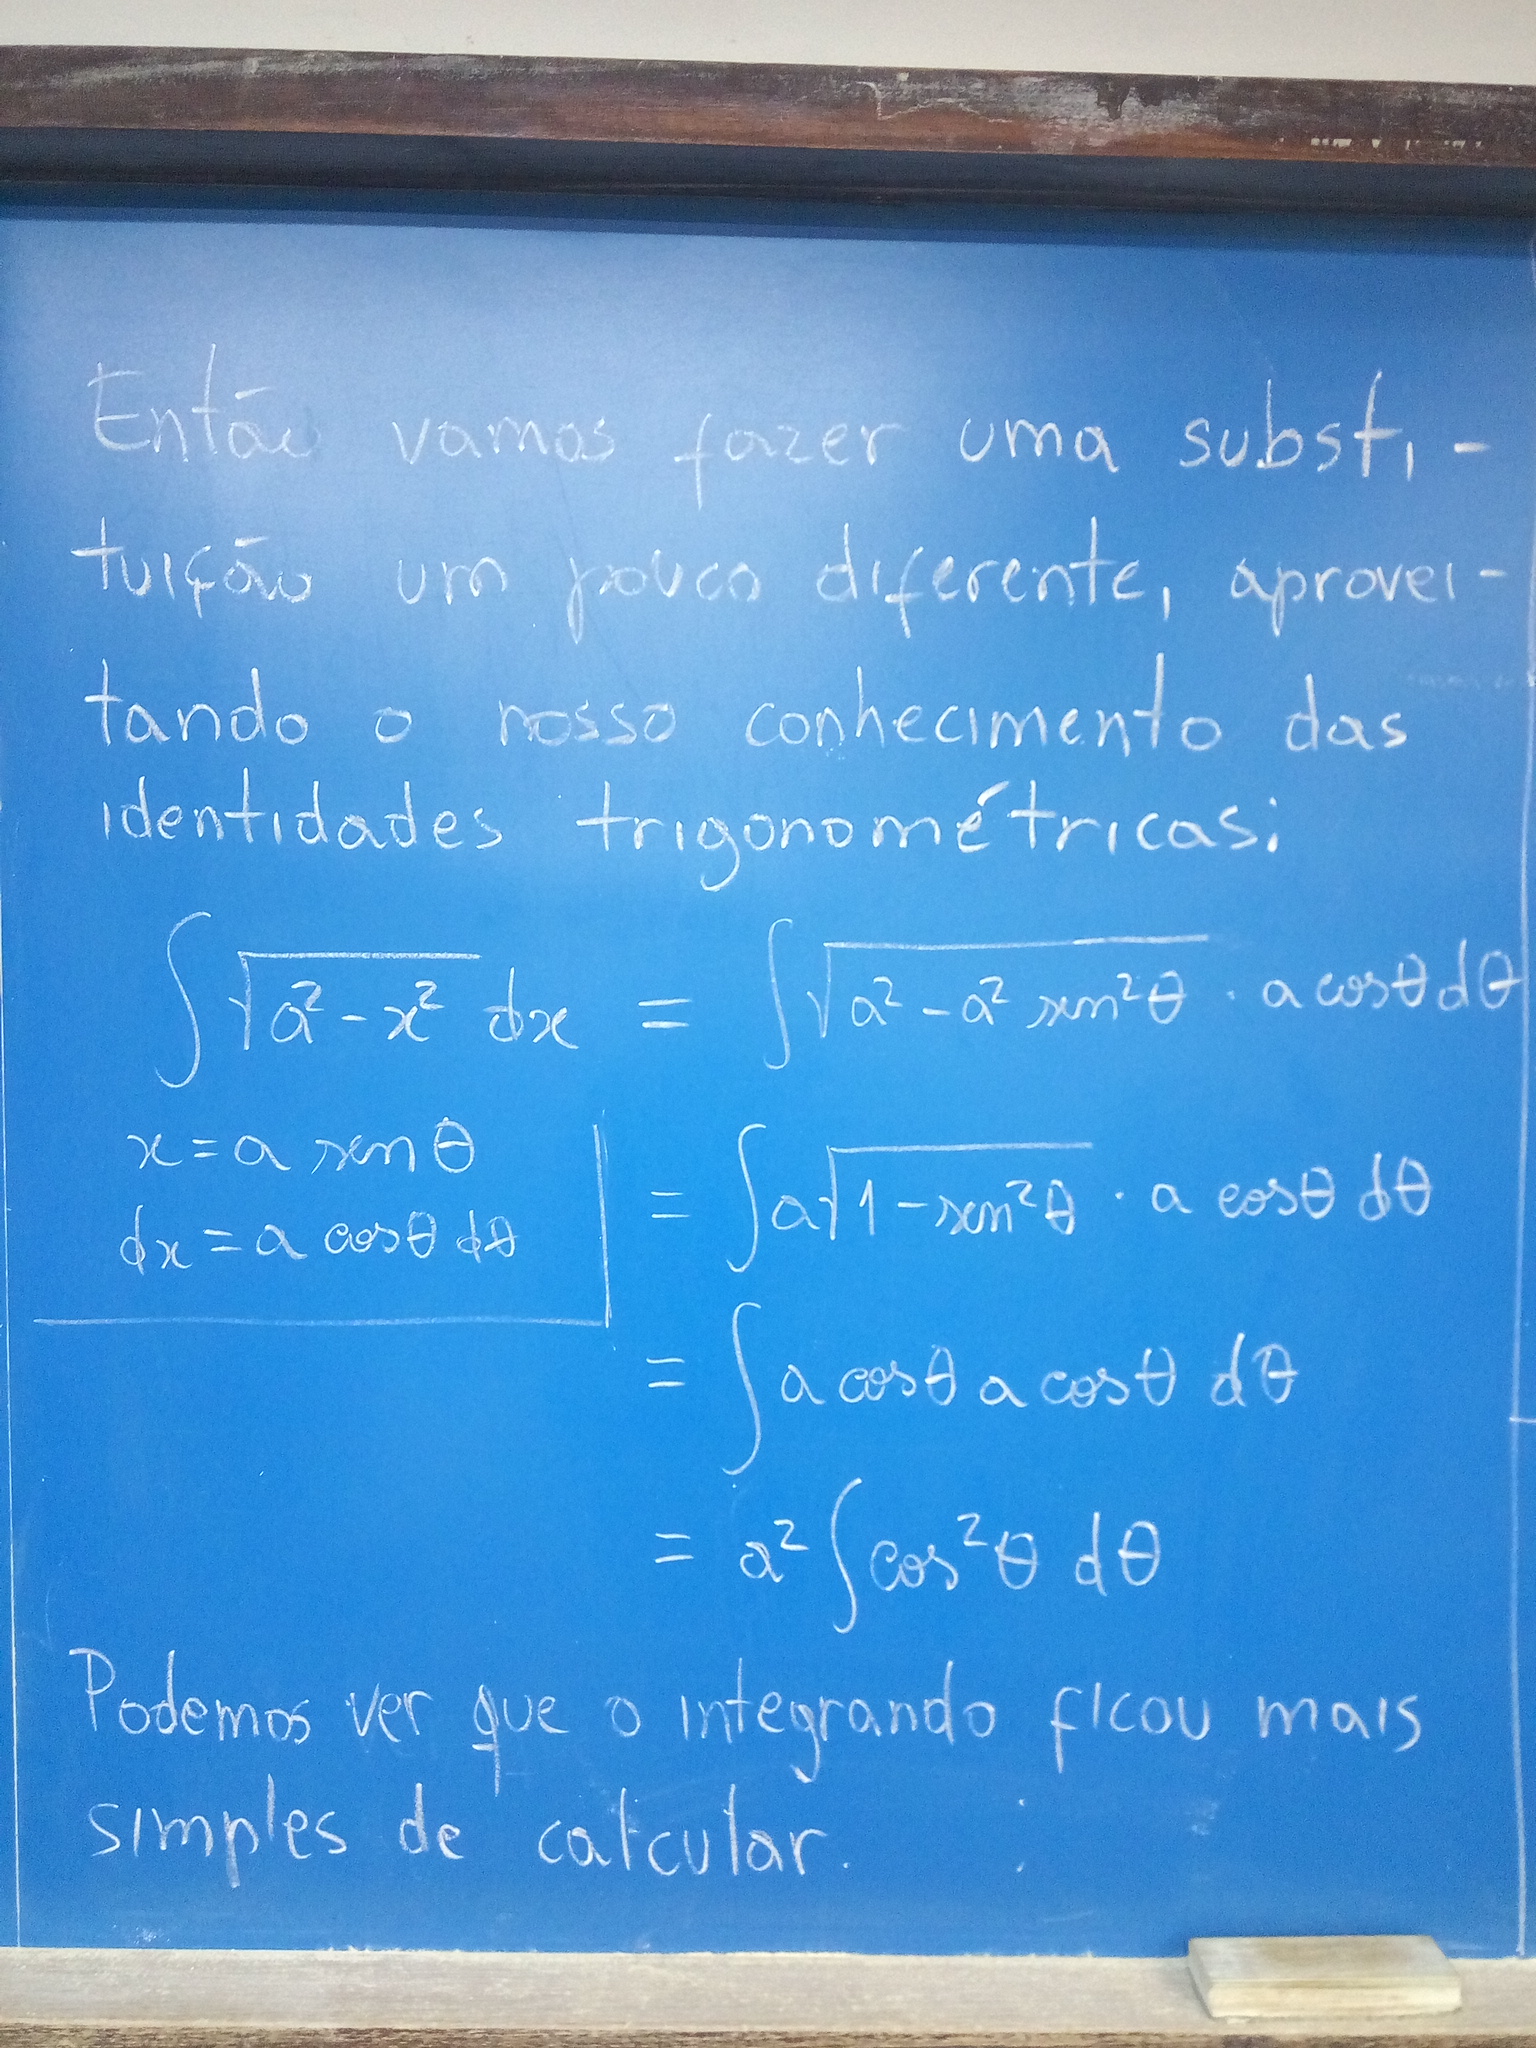 Então vamos fazer uma substi-
tuição um pouco diferente, aprovei-
tando o nosso conhecimento das
identidades trigonométricas:
∫√(a² - x²) dx = ∫√(a² - a² sen²θ) · a cosθ dθ
x = a senθ
dx = a cosθ dθ
= ∫a√(1 - sen²θ) · a cosθ dθ
= ∫a cosθ a cosθ dθ
= a² ∫cos²θ dθ
Podemos ver que o integrando ficou mais
simples de calcular.